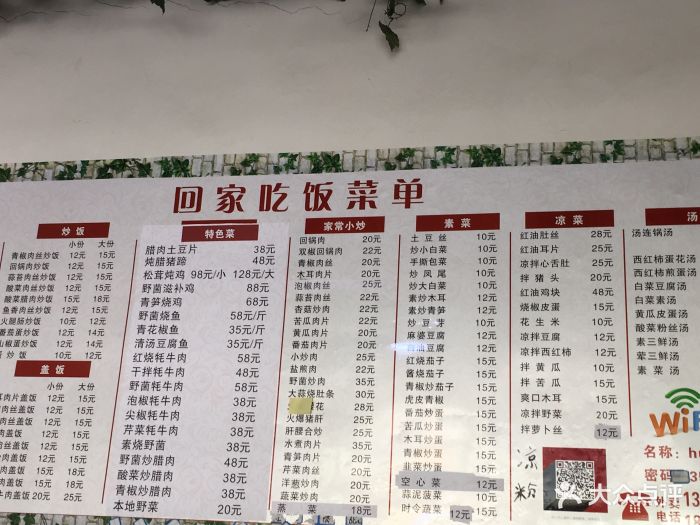 回家吃饭菜单
炒饭
小份 大份
青椒肉丝炒饭 12元 15元
回锅肉炒饭 12元 15元
蒜苔肉丝炒饭 12元 15元
酸菜肉丝炒饭 12元 15元
酸菜腊肉炒饭 15元 20元
鱼香肉丝炒饭 12元 15元
火腿肠炒饭 10元 12元
番茄蛋炒饭 12元 14元
椒蛋炒饭 12元 14元
炒饭 10元 12元
盖饭
小份 大份
肉片盖饭 12元 15元
丝盖饭 12元 15元
盖饭 12元 15元
盖饭 12元 15元
丝盖饭 12元 15元
盖饭 12元 15元
肉盖饭 15元 18元
肉盖饭 15元 18元
肉盖饭 20元 25元
特色菜
腊肉土豆片 38元
炖腊猪蹄 48元
松茸炖鸡 98元/小 128元/大
野菌滋补鸡 88元
青笋烧鸡 68元
野菌烧鱼 58元/斤
青花椒鱼 35元/斤
清汤豆腐鱼 35元/斤
红烧牦牛肉 58元
干拌牦牛肉 48元
野菌牦牛肉 58元
泡椒牦牛肉 38元
尖椒牦牛肉 38元
芹菜牦牛肉 38元
素烧野菌 38元
野菌炒腊肉 48元
酸菜炒腊肉 38元
青椒炒腊肉 38元
本地野菜 20元
家常小炒
回锅肉 20元
双椒回锅肉 22元
青椒肉丝 20元
木耳肉片 20元
泡椒肉丝 25元
蒜苔肉丝 22元
杏菇炒肉 22元
苦瓜肉片 22元
黄瓜肉片 20元
番茄肉片 20元
小炒肉 25元
盐煎肉 22元
野菌炒肉 35元
大蒜烧肚条 30元
花 28元
火爆猪肝 25元
肝腰合炒 25元
水煮肉片 35元
青笋肉片 20元
芹菜肉丝 20元
洋葱炒肉 20元
蔬菜炒肉 20元
蒸菜 18元
素菜
土豆丝 10元
炒小白菜 10元
手撕包菜 10元
炒凤尾 10元
炒大白菜 10元
素炒木耳 12元
素炒青笋 10元
炒豆芽 10元
麻婆豆腐 10元
豆腐 12元
红烧茄子 15元
酱烧茄子 15元
青椒炒茄子 15元
虎皮青椒 15元
番茄炒蛋 15元
苦瓜炒蛋 15元
木耳炒蛋 15元
青椒炒蛋 15元
韭菜炒蛋 15元
空心菜 12元
蒜泥菠菜 10元
时令蔬菜 12元
凉菜
红油肚丝 28元
红油耳片 25元
凉拌心舌肚 25元
拌猪头 20元
红油鸡块 48元
烧椒皮蛋 15元
花生米 10元
凉拌豆腐 12元
凉拌西红柿 12元
拌黄瓜 10元
拌苦瓜 15元
爽口木耳 15元
凉拌野菜 20元
拌萝卜丝 12元
凉粉
汤
汤连锅汤
西红柿蛋花汤
西红柿煎蛋汤
白菜豆腐汤
白菜素汤
黄瓜皮蛋汤
酸菜粉丝汤
素三鲜汤
荤三鲜汤
素菜汤
WiF
名称：h
密码
外卖 13
电话 1
大众点评